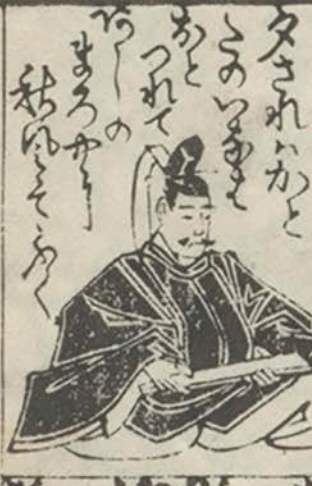 夕されハかと
たのいなは
おと
つれて
あしの
まろやに
秋風そふく